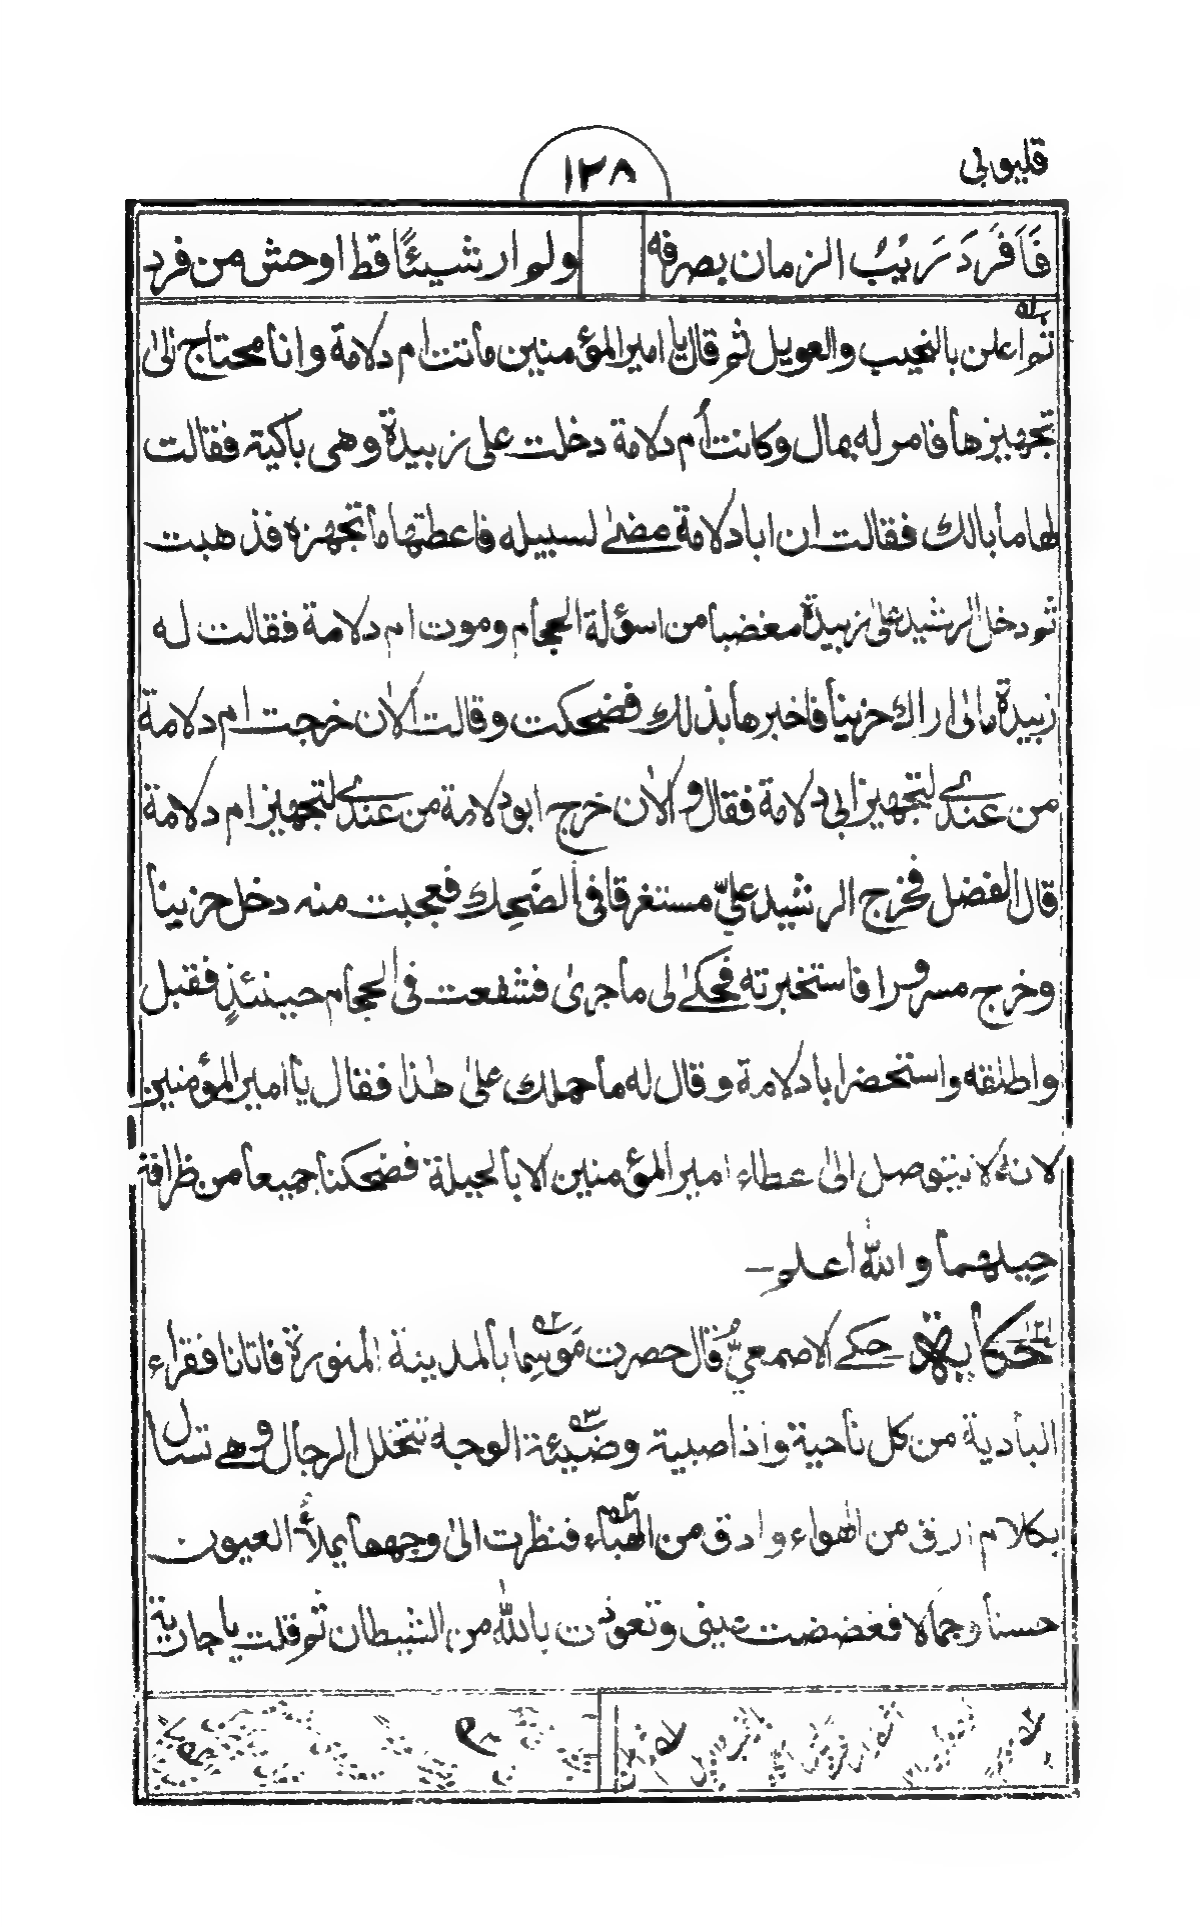 قليوبي
١٢٨
فَاَفْرَدَ رَيْبُ الزمان بصرفه ولم ار شيئًا قط اوحش من فرد
ثم اعلن بالنحيب والعويل ثم قال يا امير المؤمنين ماتت ام دلامة وانا محتاج الىٰ
تجهيزها فامر له بمال وكانت أم دلامة دخلت على زبيدة وهى باكية فقالت
لها ما بالك فقالت ان ابا دلامة مضىٰ لسبيله فاعطتها ما تجهزه فذهبت
ثم دخل الرشيد علىٰ زبيدة مغضبا من اسؤلة الحجام وموت ام دلامة فقالت له
زبيدة مالى اراك حزينا فاخبرها بذلك فضحكت وقالت الاٰن خرجت ام دلامة
من عندى لتجهيز ابى دلامة فقال والاٰن خرج ابو دلامة من عندى لتجهيز ام دلامة
قال الفضل فخرج الرشيد علىّ مستغرقا فى الضَحِك فعجبت منه دخل حزينا
وخرج مسرورا فاستخبرته فحكىٰ لى ما جرىٰ فشفعت فى الحجام حينئذٍ فقبل
واطلقه واستحضر ابا دلامة وقال له ما حملك علىٰ هٰذا فقال يا امير المؤمنين
لانه لا نتوصل الىٰ عطاء امير المؤمنين الا بالحيلة فضحكنا جميعا من ظرافة
حِيلهما والله اعلم
حكاية حكى الاصمعىُّ قال حضرت مَوْسِما بالمدينة المنورة فاتانا فقراء
البادية من كل ناحية واذا صبية وضيئة الوجه تتخلل الرجال وهى تسال
بكلام ارق من الهواء وادق من الهباء فنظرت الىٰ وجهها يملأ العيون
حسنا وجمالا فغضضت عينى وتعوذت بالله من الشيطان ثم قلت يا جارية